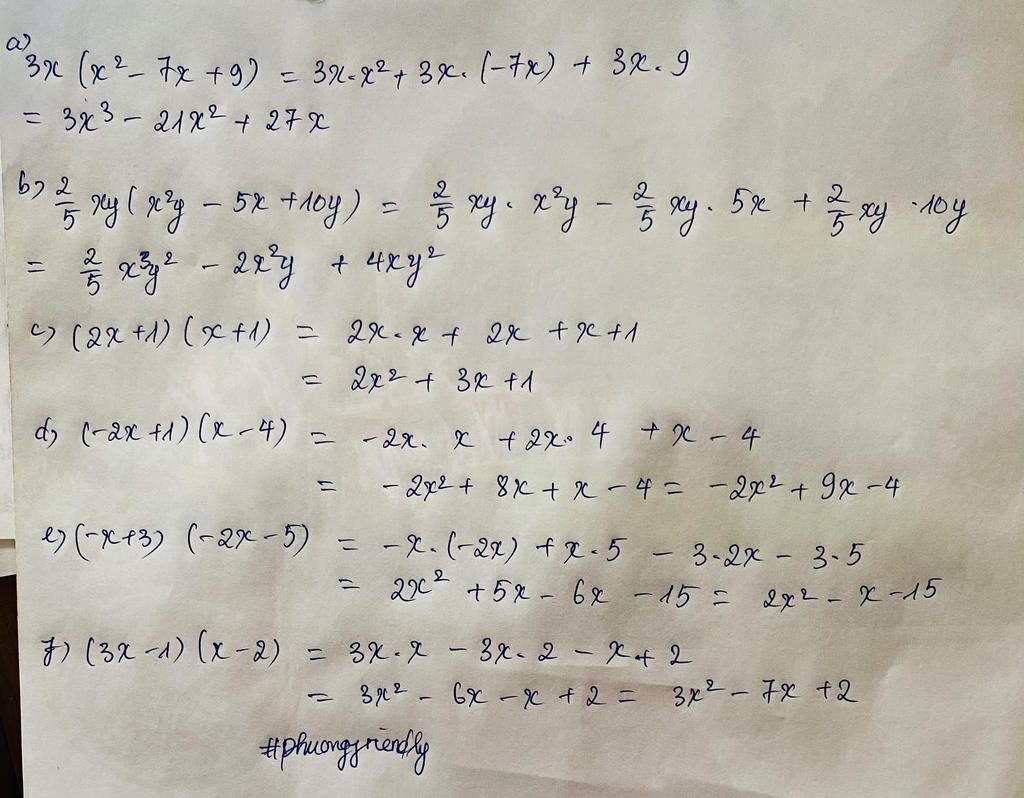 a)
3x (x² - 7x + 9) = 3x.x² + 3x. (-7x) + 3x.9
= 3x³ - 21x² + 27x
b) 2/5 xy (x²y - 5x + 10y) = 2/5 xy. x²y - 2/5 xy. 5x + 2/5 xy .10y
= 2/5 x³y² - 2x²y + 4xy²
c) (2x+1) (x+1) = 2x.x + 2x + x + 1
= 2x² + 3x + 1
d) (-2x+1) (x-4) = -2x. x + 2x. 4 + x - 4
= -2x² + 8x + x - 4 = -2x² + 9x - 4
e) (-x+3) (-2x-5) = -x.(-2x) + x.5 - 3.2x - 3.5
= 2x² + 5x - 6x - 15 = 2x² - x - 15
f) (3x-1) (x-2) = 3x.x - 3x.2 - x + 2
= 3x² - 6x - x + 2 = 3x² - 7x + 2
#phuongfriendly